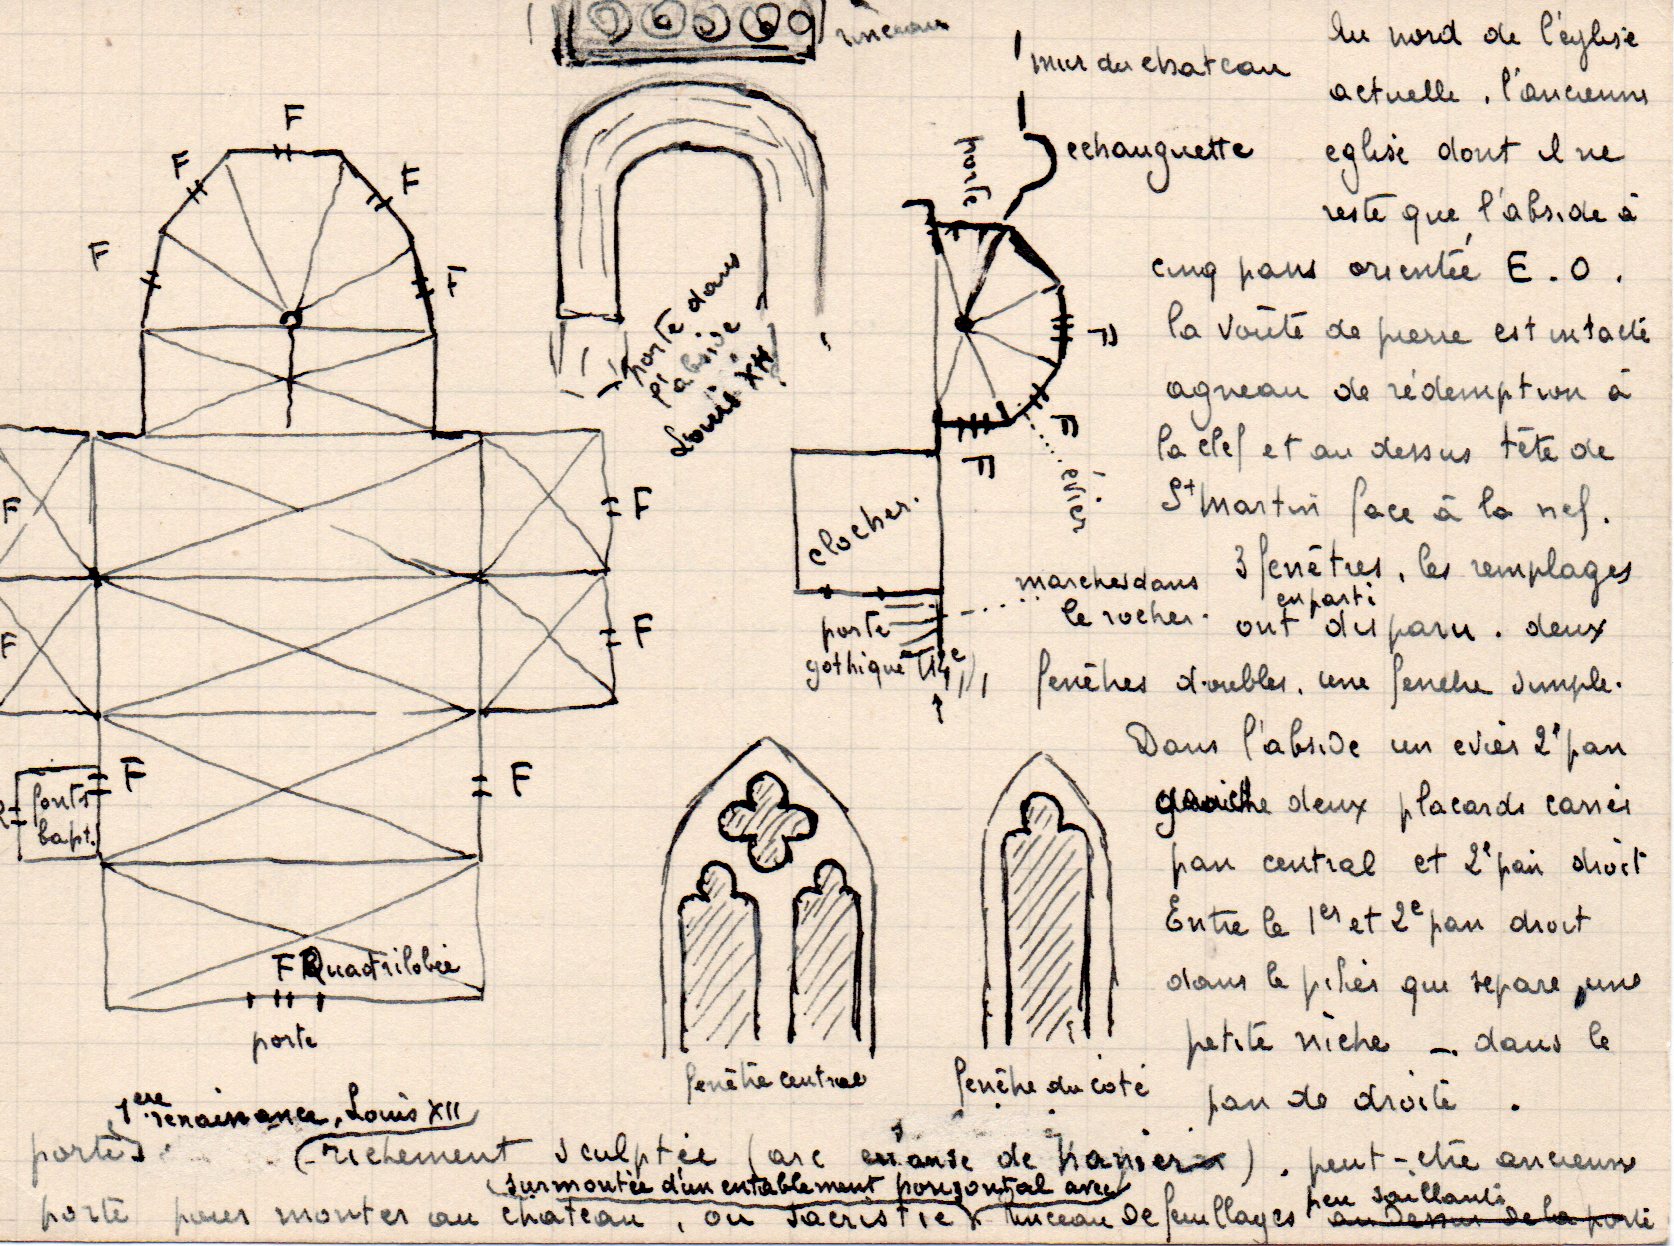 rinceaux
F
F
F
F
F
porte dans
l'abside
Louis XII
F
F
F
F
F
F
fonts
bapt.
F
F Quadrilobée
porte
mur du chateau
echauguette
porte
F
F
F
évier
clocher.
marches dans
le rocher.
porte
gothique (14e)
fenêtre centrale
fenêtre du coté
Au nord de l'église
actuelle, l'ancienne
eglise dont il ne
reste que l'abside à
cinq pans orientée E.O.
la voûte de pierre est intacte
agneau de rédemption à
la clef et au dessus tête de
St Martin face à la nef.
3 fenêtres, les remplages
en parti
ont disparu. deux
fenêtres doubles. une fenetre simple.
Dans l'abside un evier 2e pan
gauche deux placards carrés
pan central et 2e pan droit
Entre le 1er et 2e pan droit
dans le pilier qui separe, une
petite niche - dans le
pan de droite.
1ere renaissance, Louis XII
porte richement sculptée (arc en anse de panier). peut-etre ancienne
surmontée d'un entablement horizontal avec
porte pour monter au château, ou sacristie rinceau de feuillages peu saillants
au dessus de la porte